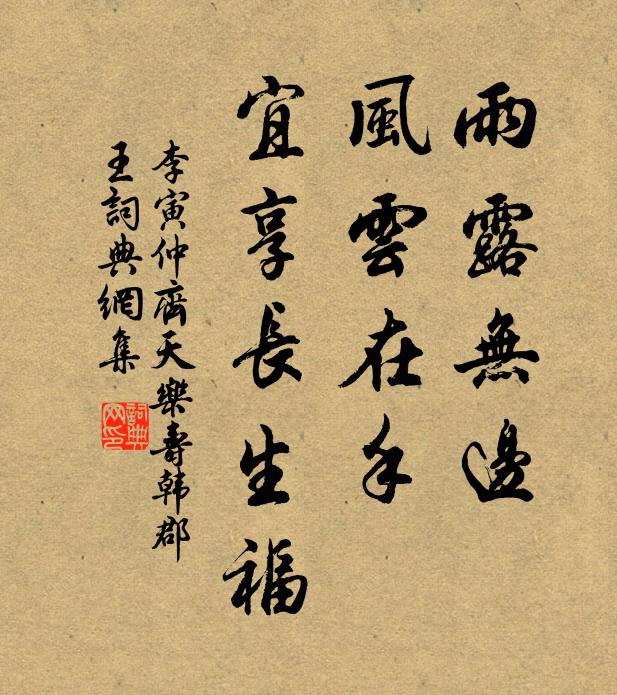 雨露無邊
風雲在手
宜享長生福
李寅仲齊天樂壽韩郡
王詞典網集
詞典網印